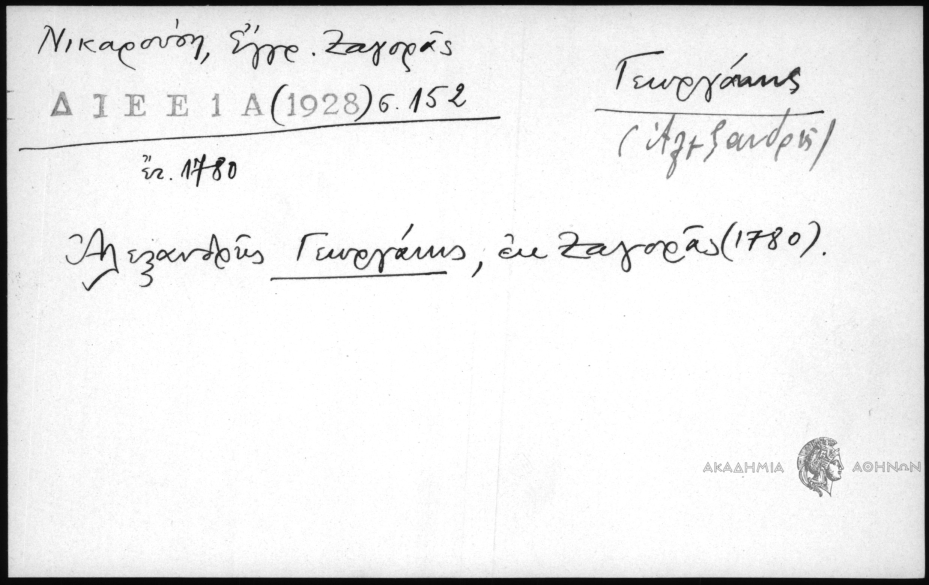 Νικαρούση, Ἔγγρ. Ζαγορᾶς
Δ Ι Ε Ε 1 Α (1928) σ. 152
ἔτ. 1780
Γεωργάκης
(Ἀλεξανδρῆς)
Ἀλεξανδρῆς Γεωργάκης, ἐκ Ζαγορᾶς (1780).
ΑΚΑΔΗΜΙΑ ΑΘΗΝΩΝ